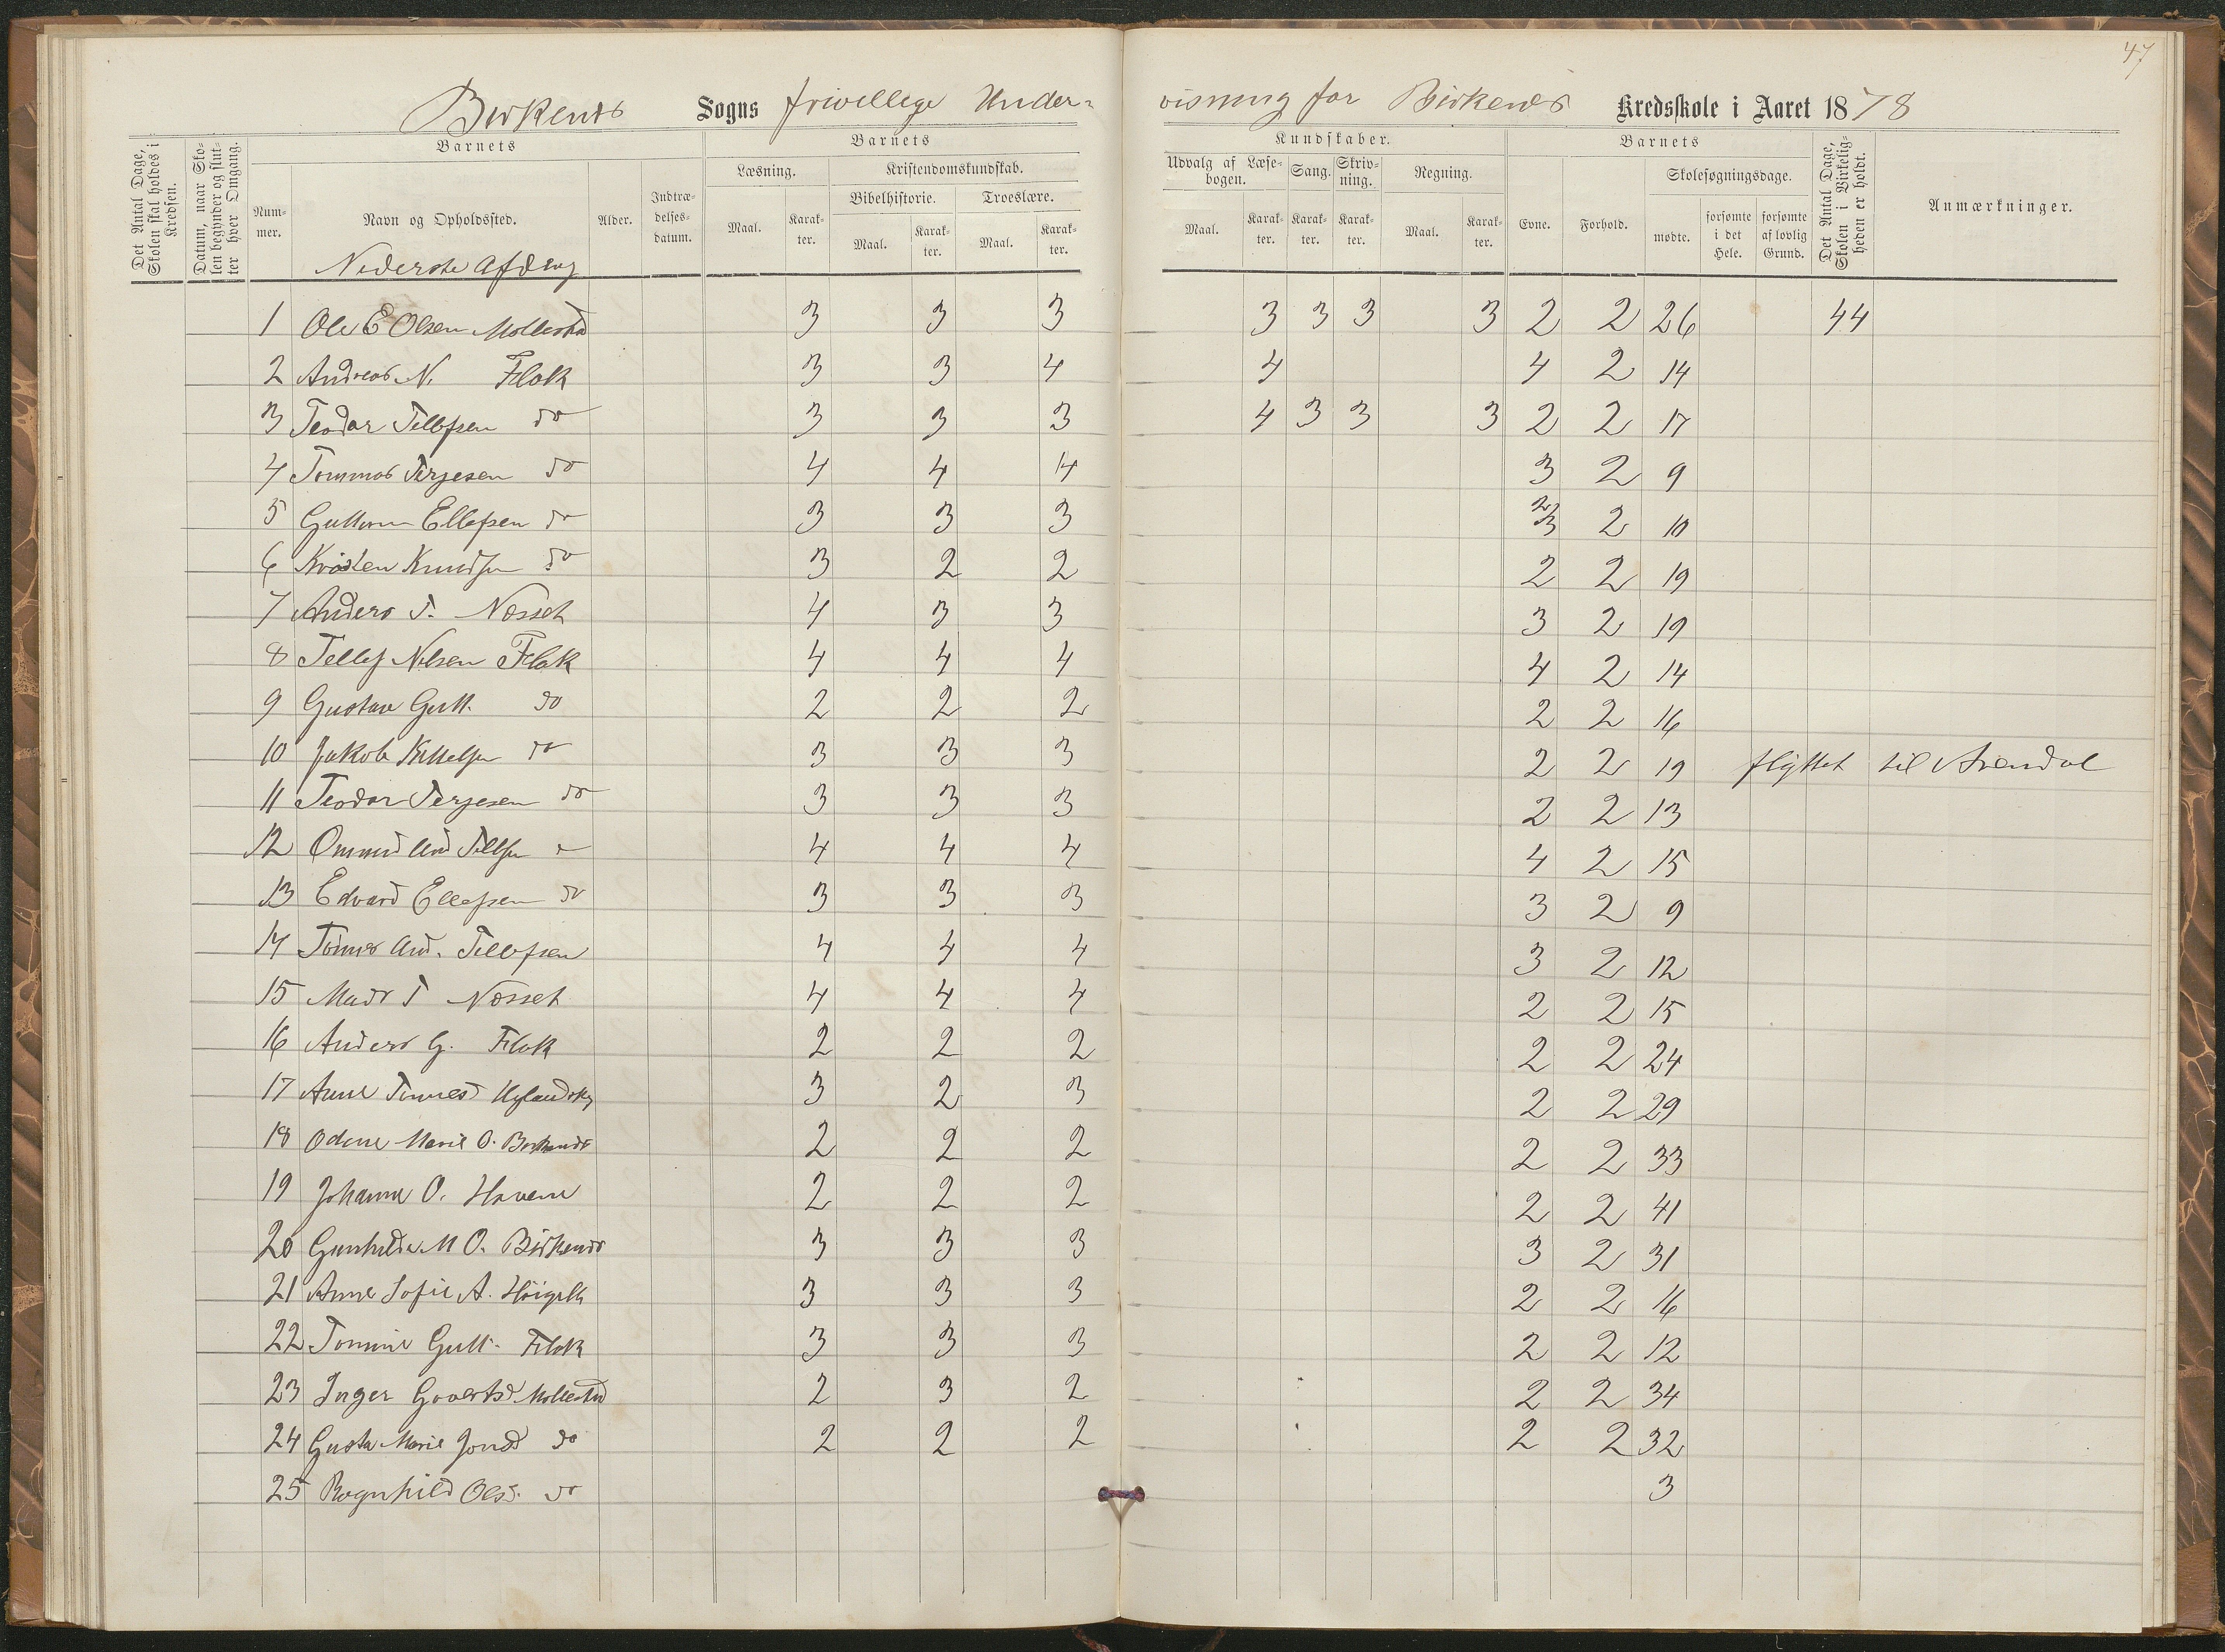 47
Birkenes Sogns frivillige Under- visning for Birkenes Kredsskole i Aaret 1878
Det Antal Dage, Skolen skal holdes i Kredsen.
Datum, naar Skolen begynder og slutter hver Omgang.
Barnets
Nummer.
Navn og Opholdssted.
Alder.
Indtrædelsesdatum.
Barnets
Læsning.
Maal.
Karakter.
Kristendomskundskab.
Bibelhistorie.
Maal.
Karakter.
Troeslære.
Maal.
Karakter.
Kundskaber.
Udvalg af Læsebogen.
Maal.
Karakter.
Sang.
Karakter.
Skrivning.
Karakter.
Regning.
Maal.
Karakter.
Barnets
Evne.
Forhold.
Skolesøgningsdage.
mødte.
forsømte i det Hele.
forsømte af lovlig Grund.
Det Antal Dage, Skolen i Virkeligheden er holdt.
Anmærkninger.
Nederste Afdeling
1 Ole E Olsen Mollestad 3 3 3 3 3 3 3 2 2 26 44
2 Andreas N. Flak 3 3 4 4 4 2 14
3 Teodor Tellefsen do 3 3 3 4 3 3 3 2 2 17
4 Tommas Terjesen do 4 4 4 3 2 9
5 Guttorm Ellefsen do 3 3 3 2/3 2 10
6 Kristen Knudsen do 3 2 2 2 2 19
7 Anders T. Næsset 4 3 3 3 2 19
8 Tellef Nilsen Flak 4 4 4 4 2 14
9 Gustav Gutt. do 2 2 2 2 2 16
10 Jakob Kittelsen do 3 3 3 2 2 19 flyttet til Arendal
11 Teodor Terjesen do 3 3 3 2 2 13
12 Ommund And Tellefsen do 4 4 4 4 2 15
13 Edvard Ellefsen do 3 3 3 3 2 9
14 Tønnes And. Tellefsen 4 4 4 3 2 12
15 Mads T Næsset 4 4 4 2 2 15
16 Anders G. Flak 2 2 2 2 2 24
17 Anne Tønnesd 3 2 3 2 2 29
18 Odine Marie O. Birkenes 2 2 2 2 2 33
19 Johanne O. Havene 2 2 2 2 2 41
20 Gunhilde M O. Birkenes 3 3 3 3 2 31
21 Anne Sofie A. 3 3 3 2 2 16
22 Tomine Gutt. Flak 3 3 3 2 2 12
23 Inger Govertsd Mollestad 2 3 2 2 2 34
24 Gusta Marie Jonsd do 2 2 2 2 2 32
25 Ragnhild Olsd. do 3